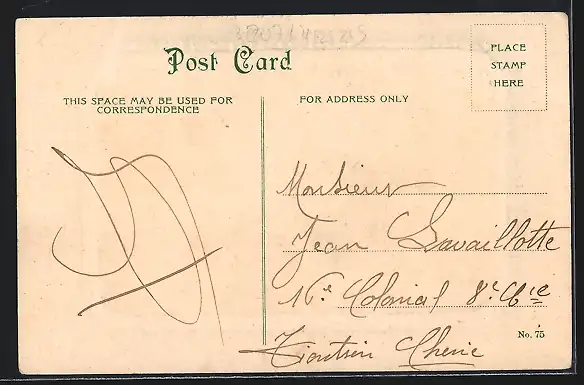 Post Card
PLACE
STAMP
HERE
THIS SPACE MAY BE USED FOR
CORRESPONDENCE
FOR ADDRESS ONLY
Monsieur
Jean Lavaillotte
16e Colonial 8e Cie
No. 75
Tientsin Chine